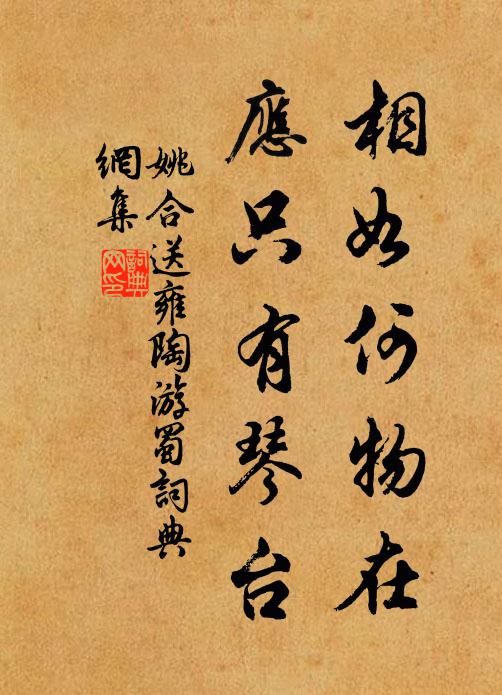 相如何物在
應只有琴台
姚合送雍陶游蜀詞典
網集
詞典
网印